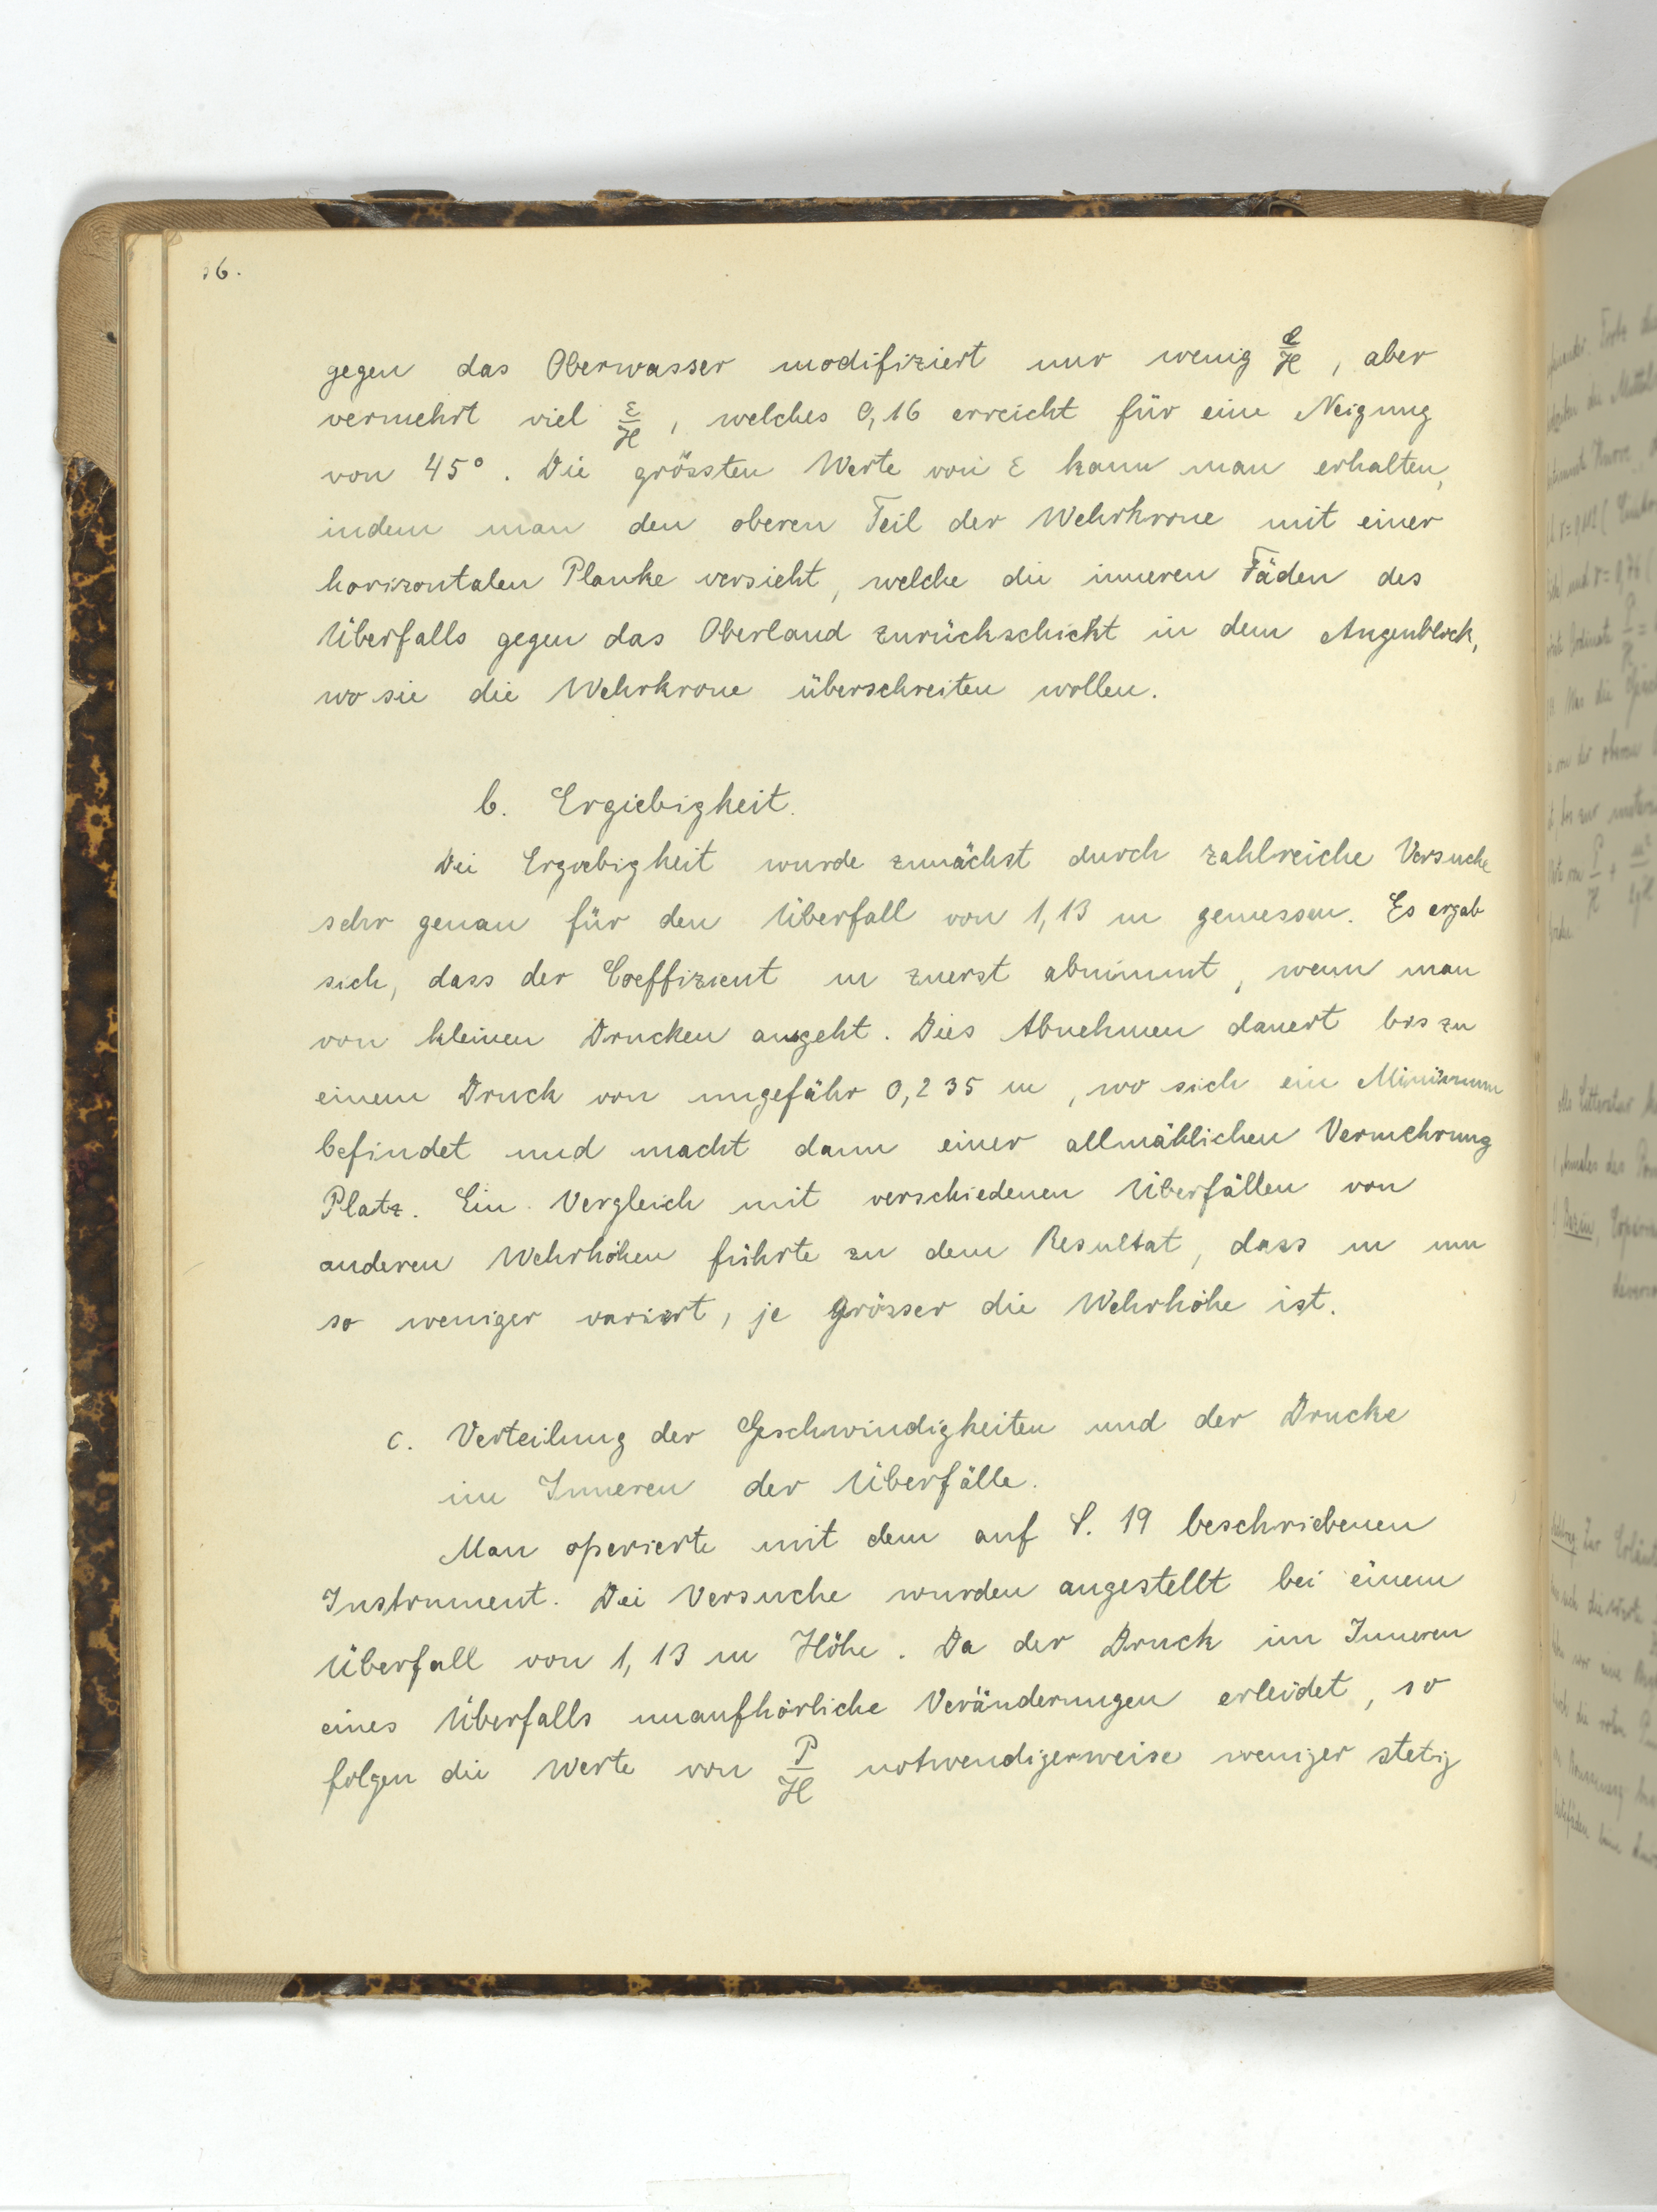 6.
gegen das Oberwasser modifiziert nur wenig e/H, aber
vermehrt viel ε/H, welches 0,16 erreicht für eine Neigung
von 45°. Die grössten Werte von ε kann man erhalten,
indem man den oberen Teil der Wehrkrone mit einer
horizontalen Planke versieht, welche die inneren Fäden des
Überfalls gegen das Oberland zurückschickt in dem Augenblick,
wo sie die Wehrkrone überschreiten wollen.
b. Ergiebigkeit.
Die Ergiebigkeit wurde zunächst durch zahlreiche Versuche
sehr genau für den Überfall von 1,13 m gemessen. Es ergab
sich, dass der Coeffizient m zuerst abnimmt, wenn man
von kleinen Drucken ausgeht. Dies Abnehmen dauert bis zu
einem Druck von ungefähr 0,235 m, wo sich ein Minimum
befindet und macht dann einer allmählichen Vermehrung
Platz. Ein Vergleich mit verschiedenen Überfällen von
anderen Wehrhöhen führte zu dem Resultat, dass m um
so weniger variiert, je grösser die Wehrhöhe ist.
c. Verteilung der Geschwindigkeiten und der Drucke
im Inneren der Überfälle.
Man operierte mit dem auf S. 19 beschriebenen
Instrument. Die Versuche wurden angestellt bei einem
Überfall von 1,13 m Höhe. Da der Druck im Inneren
eines Überfalls unaufhörliche Veränderungen erleidet, so
folgen die Werte von P/H notwendigerweise weniger stetig